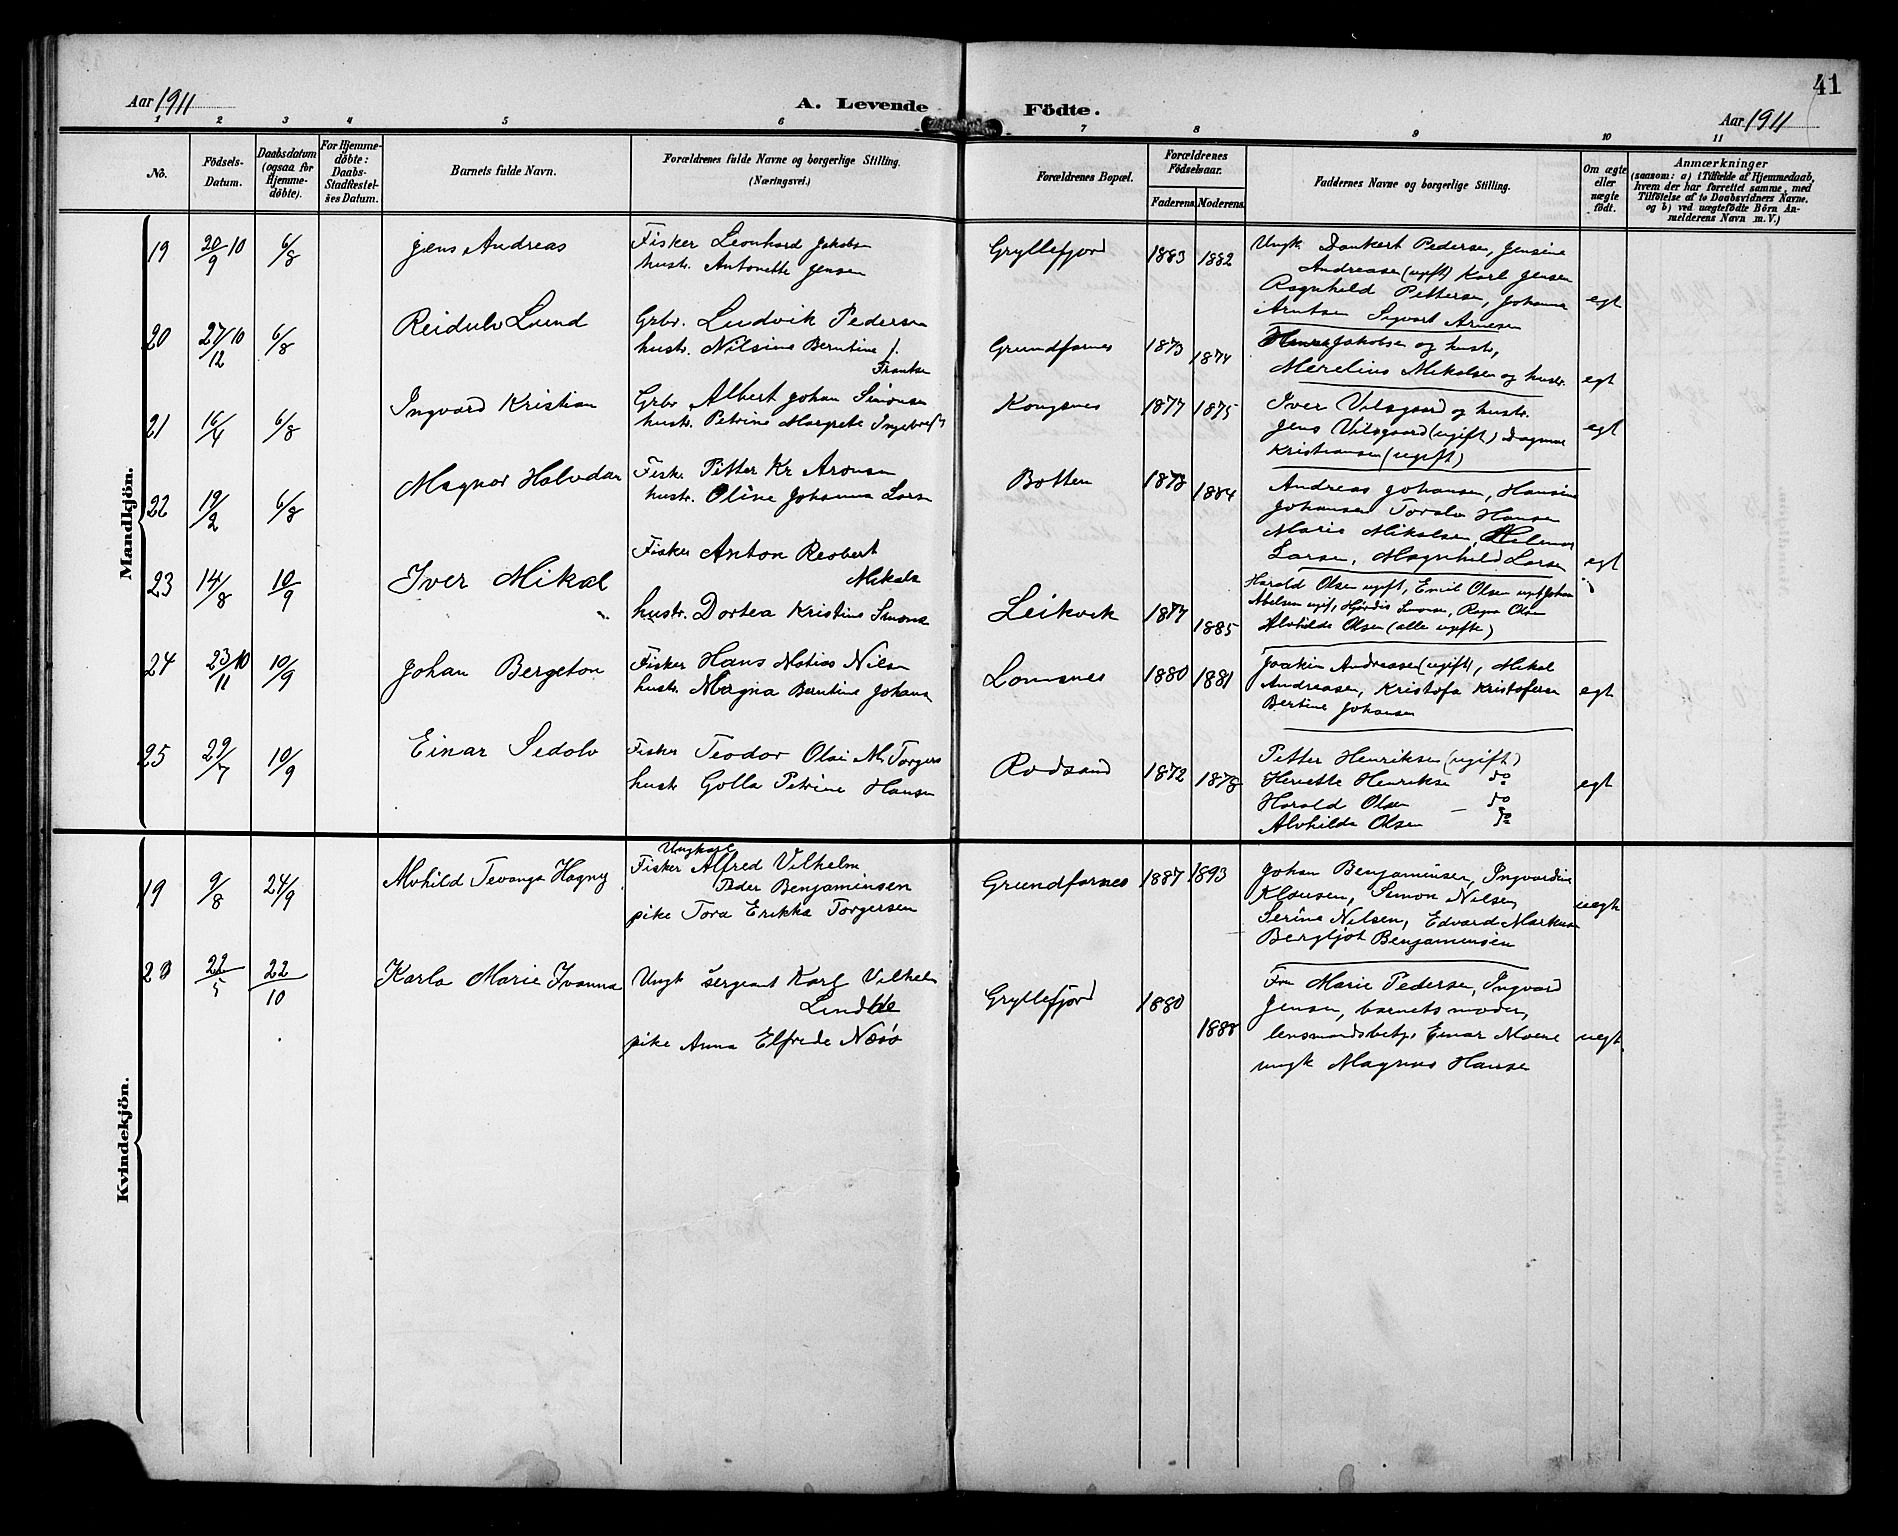 41
Aar 1911
A. Levende
Födte.
Aar 1911
1 2 3 4 5 6 7 8 9 10 11
No.
Födsels-
Datum.
Daabsdatum
(ogsaa for
Hjemme-
døbte).
For Hjemme-
døbte:
Daabs-
Stadfæstel-
ses Datum.
Barnets fulde Navn.
Forældrenes fulde Navne og borgerlige Stilling.
(Næringsvei.)
Forældrenes Bopæl.
Forældrenes
Födselsaar.
Faderens. Moderens.
Faddernes Navne og borgerlige Stilling.
Om ægte
eller
uægte
født.
Anmærkninger
(saasom: a) i Tilfælde af Hjemmedaab,
hvem der har forrettet samme, med
Tilföielse af to Daabsvidners Navne,
og b) ved uægtefödte Börn An-
melderens Navn m.V.)
Mandkjön.
19 20/9 10 6/8 Jens Andreas
Fisker Leonhard Jakobs
hustr. Antonette Jensen
Gryllefjord 1883 1882
Ungk. Dankert Pedersen, Jensine
Andreasen (ugift) Karl Jensen
Ragnhild Pettersen, Johanna
Arntsen Sigvart Arnesen
egt
20 27/12 10 6/8 Reidulv Lund
Grbr. Ludvik Pedersen
hustr. Nilsine Berntine f.
Frantsen
Grundfarnes 1873 1874
Jakobsen og hustr,
Merelius Mikalsen og hustr.
egt
21 16/4 6/8 Ingvard Kristian
Grbr Albert Johan Simonsen
hustr. Petrine Margrete Ingebre
Kongsnes 1877 1875
Iver Vilsgaard og hustr.
Jens Vilsgaard (ugift) Dagmar
Kristiansen (ugift)
egt
22 19/2 6/8 Magnar Halvdan
Fisk. Pitter Kr Aronsen
hustr. Oline Johanna Lars
Botten 1878 1884
Andreas Johansen, Hansine
Johansen Toralv Hansen
Marie Mikalsen, Hilmar
Larsen, Magnhild Larsen
egt
23 14/8 10/9 Iver Mikal
Fisker Anton Reobert
Mikals
hustr. Dortea Kristine Simons
Leikvik 1877 1885
Harald Olsen ugift, Emil Olsen ugift Johan
Abelsen ugif, Hjördis Simonsen, Ragna Olsen
Alvhilde Olsen (alle ugifte)
24 23/11 10 10/9 Johan Bergeton
Fisker Hans Matias Nilsen
hustr. Magna Berntine Johans
Lomsnes 1880 1881
Joakim Andreasen (ugift), Mikal
Andreasen, Kristofa Kristofersen
Bertine Johansen
egt
25 29/7 10/9 Einar Sedolv
Fisker Teodor Olai M. Torgers
hustr Golla Petrine Hansen
Rödsand 1872 1878
Petter Henriksen (ugift)
Henriksen do
Harald Olsen — do
Alvhilde Olsen do
egt
Kvindekjön.
19 9/8 24/9 Alvhild Tevanga Hagny
Ungkarl
Fisker Alfred Vilhelm
Peder Benjaminsen
pike Tora Erikka Torgersen
Grundfarnes 1887 1893
Johan Benjaminsen, Ingvardine
Klausen, Simon Nilsen,
Serine Nilsen, Edvard Markusen
Bergljot Benjaminsen
uegt
20 22/5 22/10 Karla Marie Ivanna
Ungk sergeant Karl Vilhelm
pike Anna Elfrede Næsø
Gryllefjord 1880 1888
Fru Marie Pedersen, Ingvard
Jensen, barnets moder,
lensmandsbetj. Einar Moene
ungk Magnus Hansen
uegt